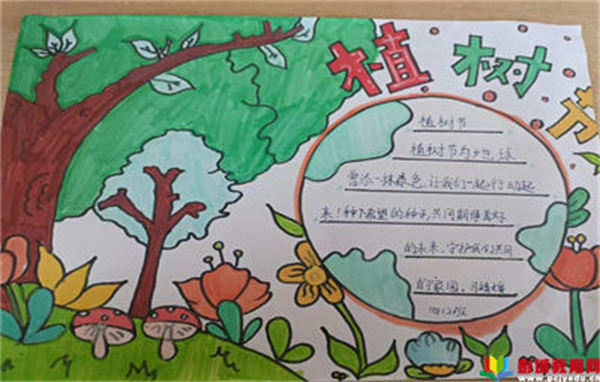 植树节
植树节
植树节为地球
增添一抹绿色,让我们一起行动起
来!种下希望的种子,共同期待美好
的未来,守护我们共同
的家园,
www.pcjyedu.cn